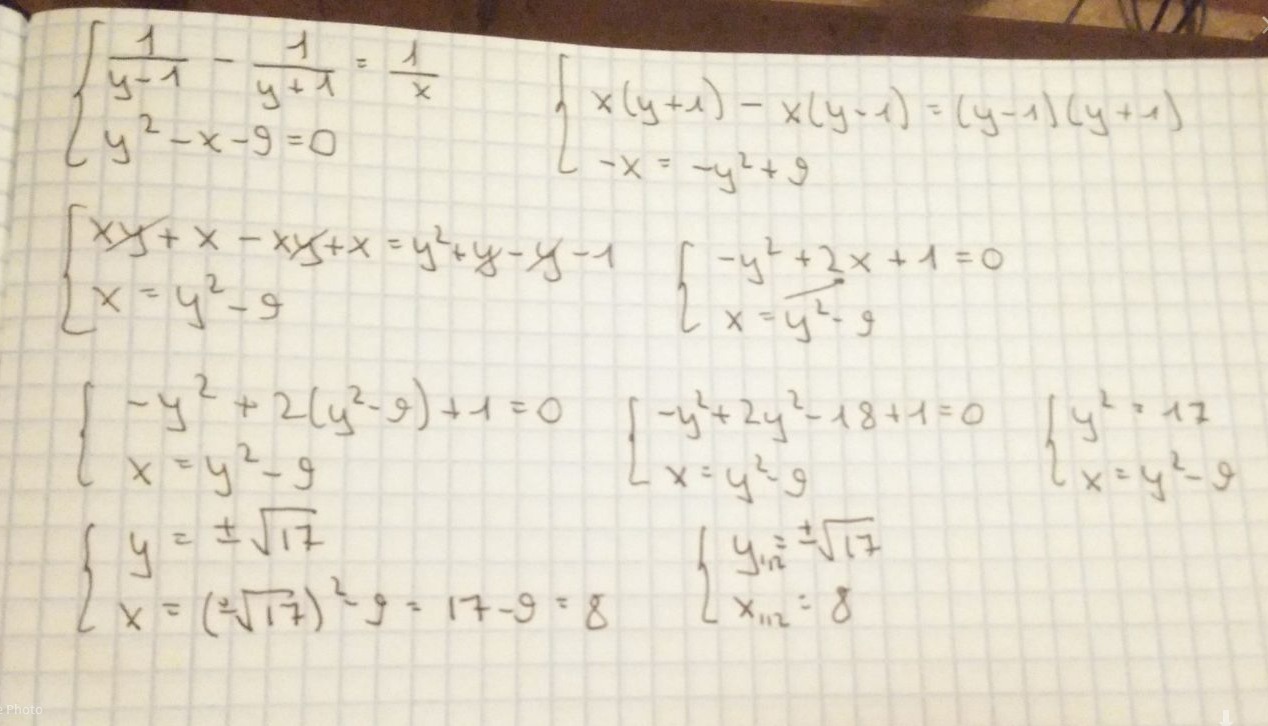 { 1/(y-1) - 1/(y+1) = 1/x
y² - x - 9 = 0
{ x(y+1) - x(y-1) = (y-1)(y+1)
-x = -y² + 9
{ xy + x - xy + x = y² + y - y - 1
x = y² - 9
{ -y² + 2x + 1 = 0
x = y² - 9
{ -y² + 2(y² - 9) + 1 = 0
x = y² - 9
{ -y² + 2y² - 18 + 1 = 0
x = y² - 9
{ y² = 17
x = y² - 9
{ y = ±√17
x = (±√17)² - 9 = 17 - 9 = 8
{ y₁,₂ = ±√17
x₁,₂ = 8
Photo